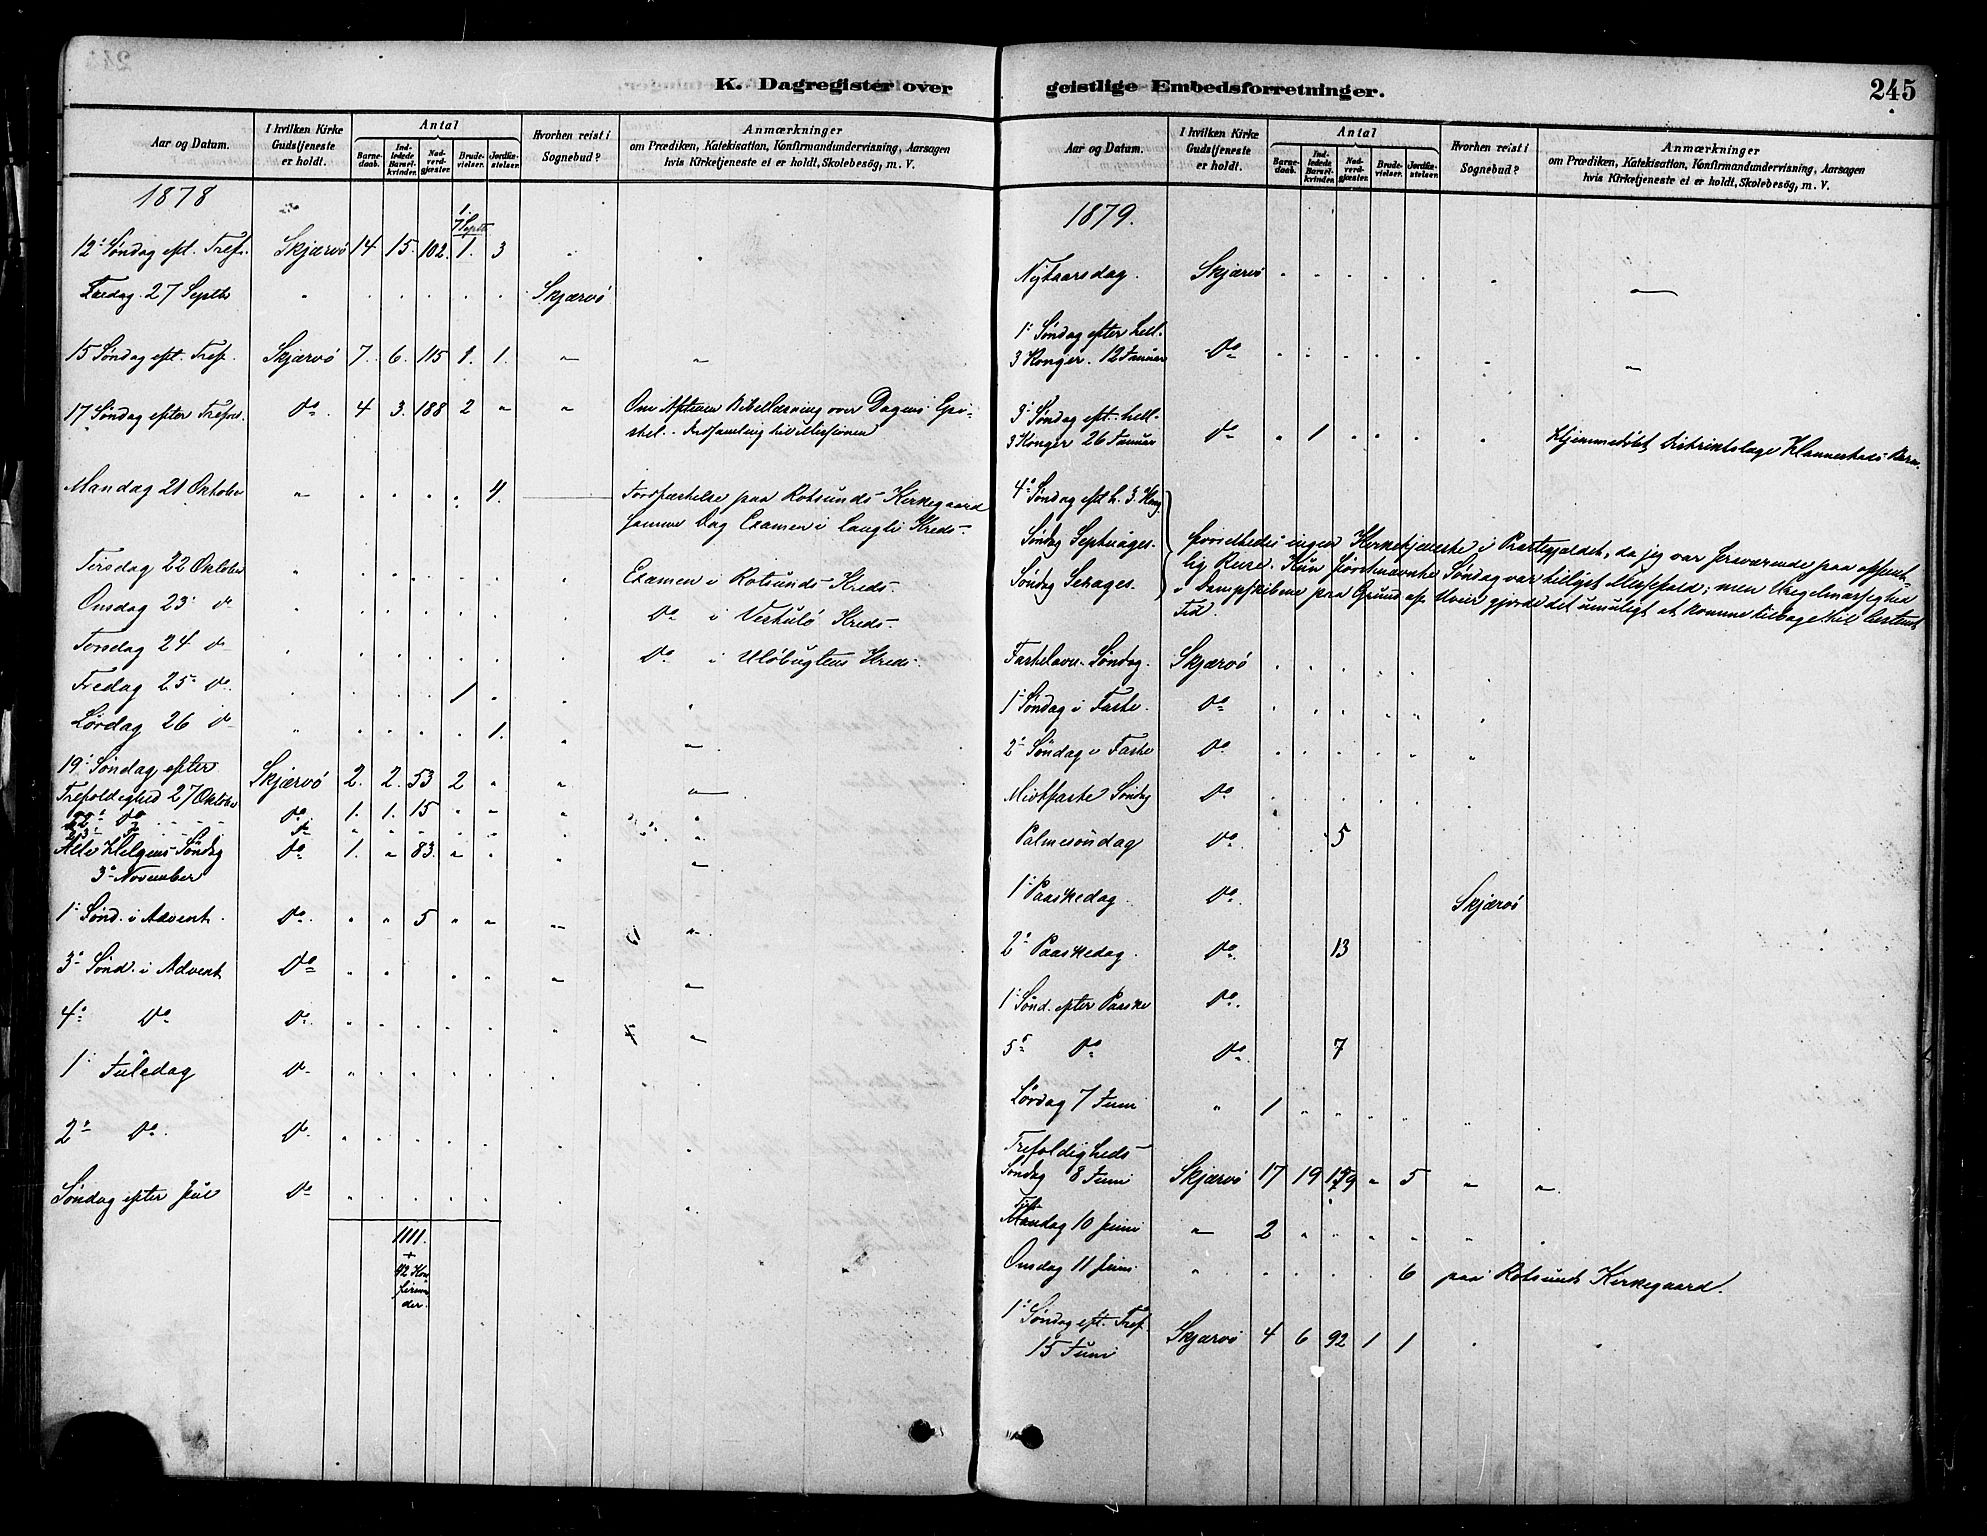 K. Dagregister over geistlige Embedsforretninger.
245
Aar og Datum.
I hvilken Kirke Gudstjeneste er holdt.
Antal
Barnedaab.
Indledede Barselkvinder.
Nadverdgjæster.
Brudevielser.
Jordfæstelser.
Hvorhen reist i Sognebud?
Anmærkninger
om Prædiken, Katekisation, Konfirmandundervisning, Aarsagen
hvis Kirketjeneste ei er holdt, Skolebesøg, m. V.
1878
7 Septb.
12te Søndag eft. Tref. Skjærvö 14. 15. 102. 1. 3
Fredag 27 Septb Skjærvö
15 Søndag eft. Tref. Skjærvö 7. 6. 115 1. 1.
17 Søndag efter Trefol. do. 4 3. 188 2 " " Om Aftenen Bibellæsning over Dagens Epi-
stel. Indsamling til Missionen
Mandag 21 Oktober " 4. Jordfæstelse paa Rotsunds Kirkegaard
samme Dag Examen i Langli Kreds.
Tirsdag 22 Oktober Examen i Rotsunds Kreds.
Onsdag 23 do i Kreds.
Torsdag 24 do do i Ulöbugtens Kreds.
Fredag 25 do. 1
Lørdag 26 do 1.
19 Søndag efter
Trefoldighed 27 Oktober Skjærvö 2. 2. 53 2
do do. 1. 1. 15
Alle Helgens Søndag do 1. " 83.
3 November
1 Sønd. i Advent. do. " " 5 " "
3 Sønd. i Advent do
4 do do.
1 Juledag do
2 do. do
Søndag efter Jul do
1111.
+
42 Kon
firman
der.
Aar og Datum.
I hvilken Kirke Gudstjeneste er holdt.
Antal
Barnedaab.
Indledede Barselkvinder.
Nadverdgjæster.
Brudevielser.
Jordfæstelser.
Hvorhen reist i Sognebud?
Anmærkninger
om Prædiken, Katekisation, Konfirmandundervisning, Aarsagen
hvis Kirketjeneste ei er holdt, Skolebesøg, m. V.
1879.
Nytaarsdag. Skjærvö
1 Søndag efter hell.
3 Konger. 12 Januar do
3 Søndag eft. hell.
3 Konger 26 Januar do 1 Hjemmedöbt Distriktslæge Barn.
4 Søndag eft h. 3. Kong.
Søndag Septuages.
Søndag Sexages.
forrettedes ingen Kirketjeneste i Præstegjældet, da jeg var fraværende paa offent-
lig Reise. Kun förstnævnte Søndag var tillyst Messefald; men Uregelmæssighed
i Dampskibene paa Grund af Uveir gjorde det umuligt at komme tilbage til bestemt
Tid
Fastelavns Søndag. Skjærvö
1 Søndag i Faste do
2 Søndag i Faste do
Midtfaste Søndag do
Palmesöndag do 5
1 Paaskedag do Skjærvö
2 Paaskedag. do. 13
1 Sønd. efter Paaske do.
5 do do. 7
Lørdag 7 Juni " 1
Trefoldigheds-
Søndag 8 Juni Skjærvö 17 19 " 5 " "
Tirsdag 10 Juni " 2
Onsdag 11 Juni 6 paa Rotsunds Kirkegaard.
1 Søndag eft. Tref.
15 Juni Skjærvö 4 6 92 1 1